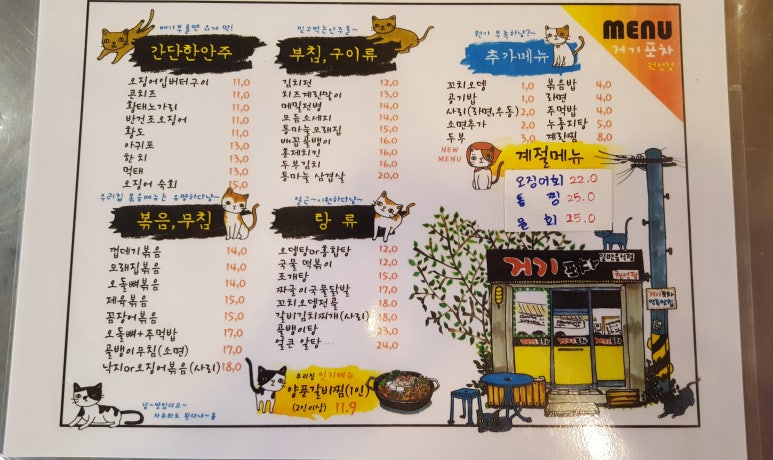 배가부를땐 요게 딱!
간단한안주
오징어입버터구이 11,0
콘치즈 11,0
황태노가리 11,0
반건조오징어 11,0
황도 11,0
아귀포 13,0
한치 13,0
먹태 13,0
오징어 숙회 15,0
믿고먹는안주들~
부침,구이류
김치전 12,0
치즈계란말이 13,0
메밀전병 14,0
모듬소세지 14,0
통마늘모래집 15,0
배꼽골뱅이 16,0
훈제치킨 16,0
두부김치 16,0
통마늘 삼겹살 20,0
뭔가 부족하냥?~
추가메뉴
꼬치오뎅 1,0
공기밥 1,0
사리(라면,우동) 2,0
소면추가 2,0
두부 3,0
볶음밥 4,0
라면 4,0
주먹밥 4,0
누룽지탕 5,0
계란찜 8,0
MENU
거기포차
전선점
NEW
MENU
계절메뉴
오징어회 22.0
통찜 25.0
물회 25.0
우리집 볶음메뉴는 유명하다냥~
볶음,무침
껍데기볶음 14,0
모래집볶음 14,0
오돌뼈볶음 14,0
제육볶음 15,0
꼼장어볶음 15,0
오돌뼈+주먹밥 17,0
골뱅이무침(소면) 17,0
낙지or오징어볶음(사리) 18,0
얼큰~시원하다냥~
탕 류
오뎅탕or홍합탕 12,0
국물 떡볶이 12,0
조개탕 15,0
짜글이국물닭발 17,0
꼬치오뎅전골 18,0
갈비김치찌개(사리) 18,0
골뱅이탕 23,0
얼큰 알탕 24,0
우리집 인기메뉴
양푼갈비찜(1인)
(2인이상) 11.9
거기포차
일반음식점
거기포차
안주맛집